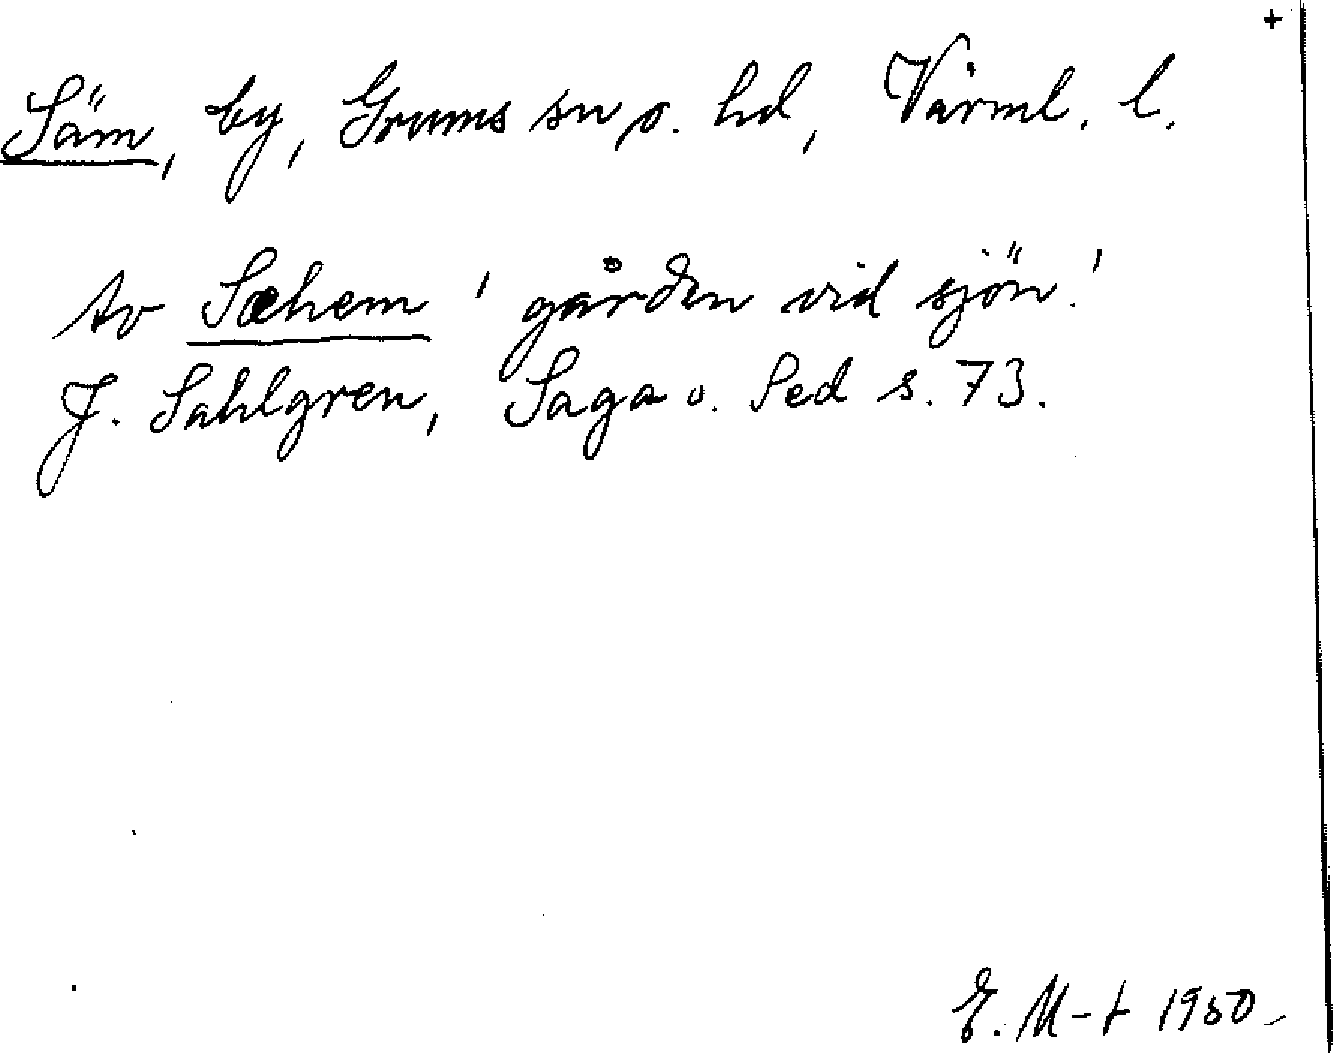 +
Säm, by, Grums sn o. hd, Värml. l.
Av Sæhem 'gården vid sjön.'
J. Sahlgren, Saga o. Sed s. 73.
E. M-t 1950